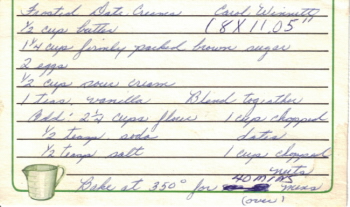 Frosted Date Creams Carol Winnett
(8 X 11.05)
½ cup butter
1¼ cup firmly packed brown sugar
2 eggs
½ cup sour cream
1 teas. vanilla Blend together
Add: 2¼ cups flour 1 cup chopped
½ teasp soda dates
½ teasp salt 1 cup chopped
nuts
Bake at 350° for 40 MINS mins
(over)